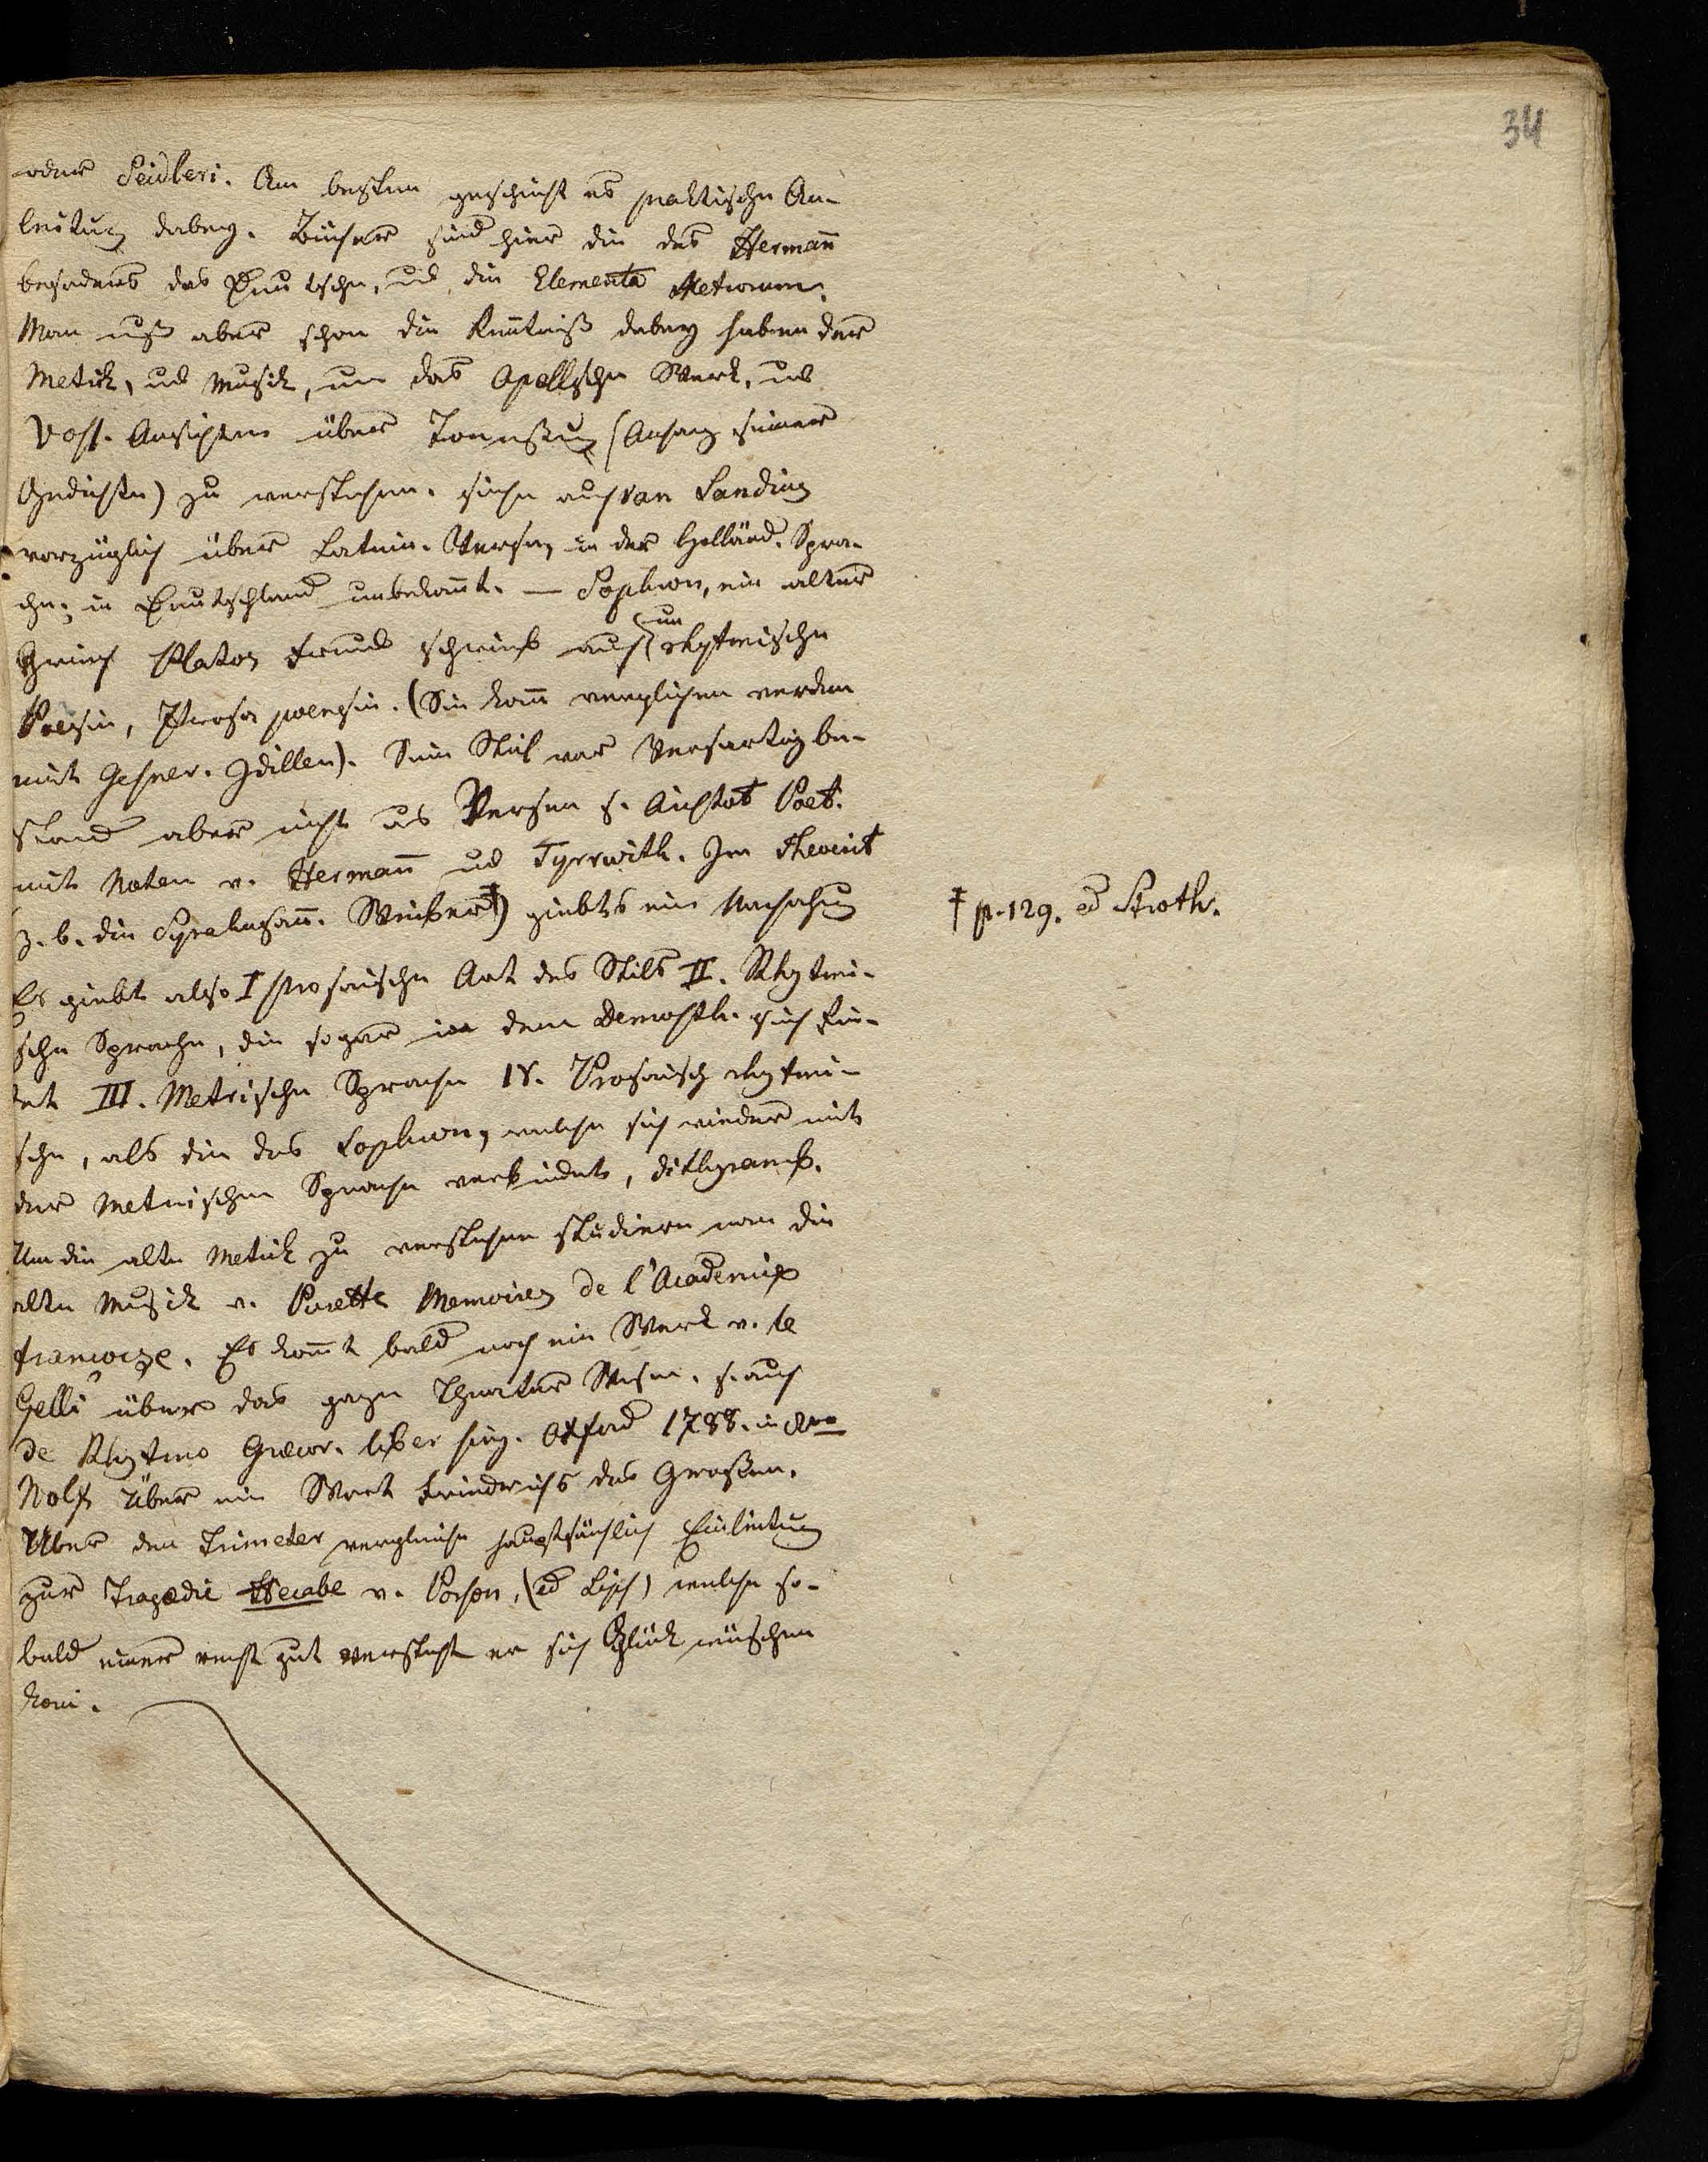 34
oder Seidleri. Am besten geschieht es praktische An-
leitung dabey. Bücher sind hier die des Hermañ
besonders das Deutsche, ud die Elementa Metrorum.
Man muß aber schon die Keñtniß dabey haben der
Metrik, ud Musik, um das Apellsche Werk, ud
Voss. Ansichten über Tonmessung (Anhang seiner
Gedichte) zu verstehen. siehe auch van Santing
vorzüglich über Latein. Verse, in der Holländ. Spra-
che; in Deutschland unbekañt. — Sophron, ein alter
Griech Platos Freund schrieb auch eine rhytmische
Poesie, Prosa poensie. (Sie kañ verglichen werden
mit Gesner. Idillen). Sein Stil war Versartig be-
stand aber nicht aus Versen s. Aristot Poet.
mit Noten v. Hermañ ud Tyrrwith. Im Theocrit
z. b. die Syrakusañ. Weiber‡) giebts eine Nachahmung
‡ p. 129. ed Stroth.
Es giebt also I prosaische Art des Stils II. Rhytmi-
sche Sprache, die sogar in dem Demosth. sich fin-
det III. Metrische Sprache IV. Prosaisch rhytmi-
sche, als die des Sophron, welche sich wieder mit
der Metrischen Sprache verbindet, dithyramb.
Um die alte Metrik zu verstehen studiere man die
alte Musik v. Burette Memoires de l'Academie
françoise. Es komt bald noch ein Werk v. le
Gelli über das ganze Theater Wesen. s. auch
de Rhytmo Græcor. liber sing. Oxford 1788. in 8vo
Wolf Über ein Wort Friedrichs des Großen.
Über den Trimeter vergleiche hauptsächlich Einleitung
zur Tragædie Hecabe v. Porson, (ed Lips) welche so-
bald einer recht gut versteht er sich Glück wüschen
kañ.